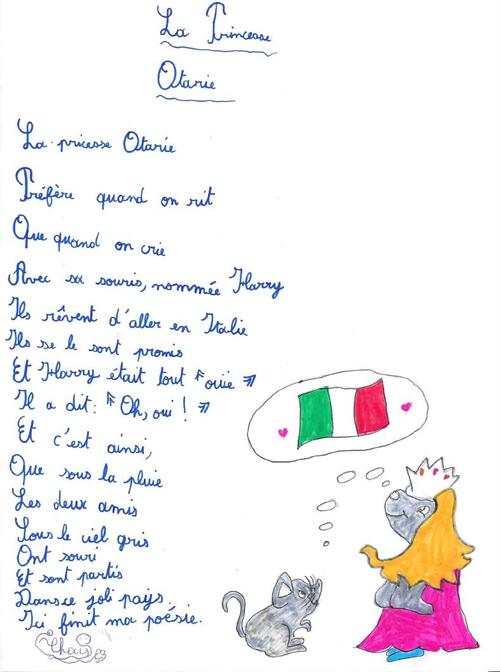 La Princesse
Otarie
La pricesse Otarie
Préfère quand on rit
Que quand on crie
Avec sa souris, nommée Harry
Ils rêvent d'aller en Italie
Ils se le sont promis
Et Harry était tout « ouïe »
Il a dit: « Oh, oui ! »
Et c'est ainsi,
Que sous la pluie
Les deux amis
Sous le ciel gris
Ont souri
Et sont partis
Dans ce joli pays.
Ici finit ma poésie.